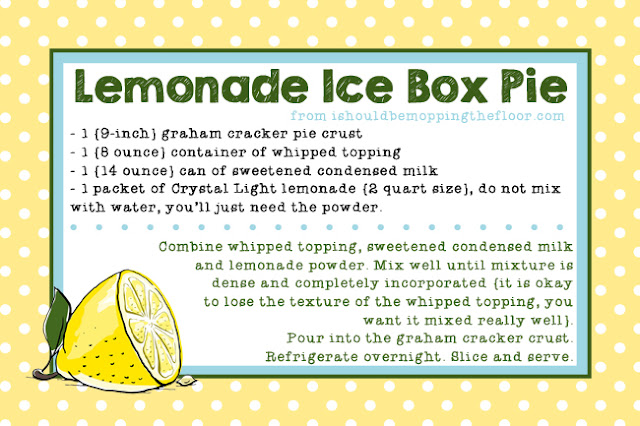 Lemonade Ice Box Pie
from ishouldbemoppingthefloor.com
- 1 {9-inch} graham cracker pie crust
- 1 {8 ounce} container of whipped topping
- 1 {14 ounce} can of sweetened condensed milk
- 1 packet of Crystal Light lemonade {2 quart size}, do not mix
with water, you'll just need the powder.
Combine whipped topping, sweetened condensed milk
and lemonade powder. Mix well until mixture is
dense and completely incorporated {it is okay
to lose the texture of the whipped topping, you
want it mixed really well}.
Pour into the graham cracker crust.
Refrigerate overnight. Slice and serve.